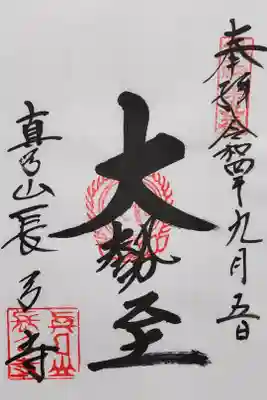 奉拝 令和四年九月五日
大勢至
真弓山長弓寺